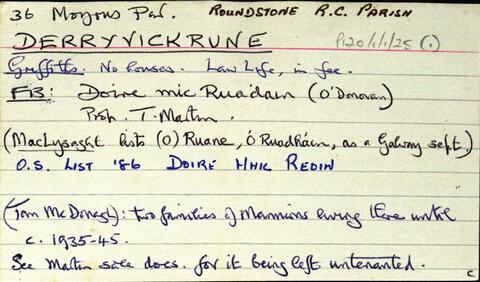 36 Moyrus Par. ROUNDSTONE R.C. PARISH
DERRYVICKRUNE P120/1/1/25 (1)
Griffiths: No houses. Law Life, in fee.
FB: Doire mic Ruadain (O'Donovan)
Prop. T. Martin.
(MacLysaght lists (O) Ruane, Ó Ruadháin, as a Galway sept.)
O.S. LIST '86 DOIRE MHIC REDIN
(Tom McDonagh): two families of Mannions living there until
c. 1935-45.
See Martin sale docs. for it being left untenanted.
c